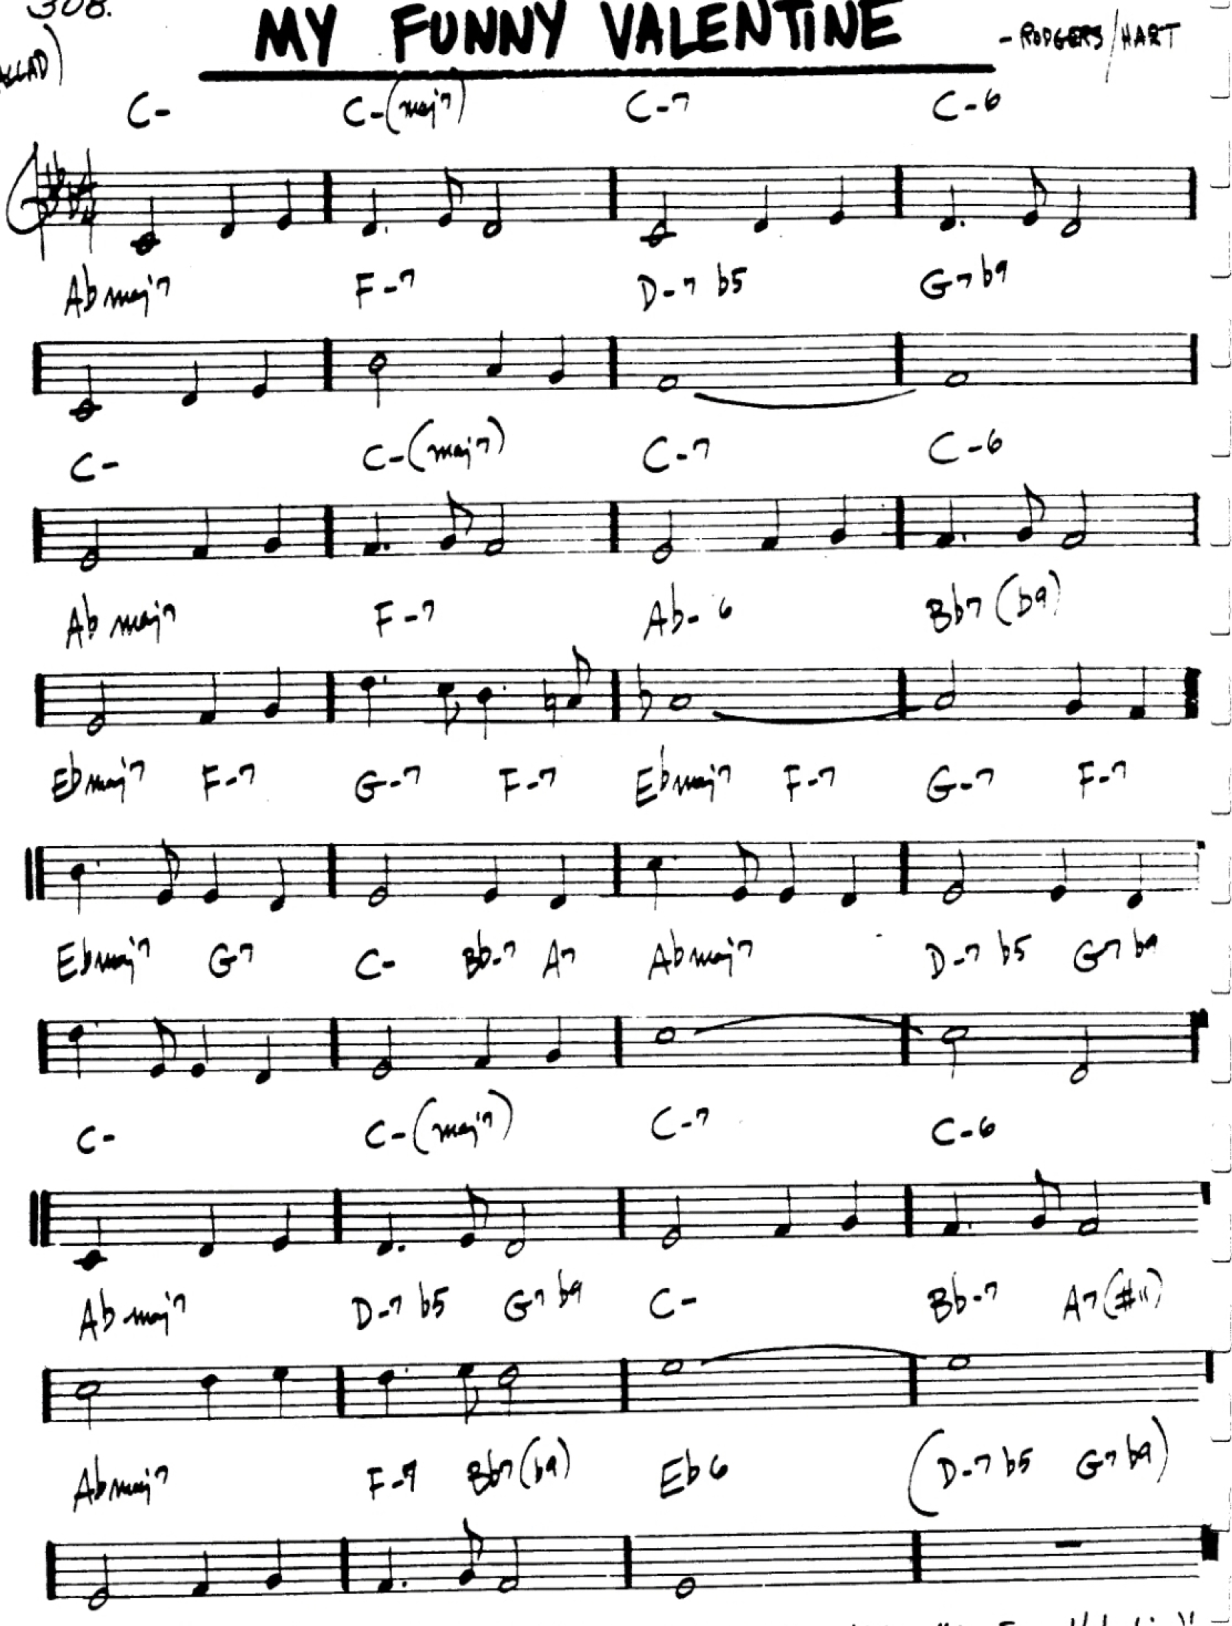 308.
MY FUNNY VALENTINE
- RODGERS/HART
C- C-(maj7) C-7 C-6
Abmaj7 F-7 D-7b5 G7b9
C- C-(maj7) C-7 C-6
Abmaj7 F-7 Ab-6 Bb7(b9)
Ebmaj7 F-7 G-7 F-7 Ebmaj7 F-7 G-7 F-7
Ebmaj7 G7 C- Bb-7 A7 Abmaj7 D-7b5 G7b9
C- C-(maj7) C-7 C-6
Abmaj7 D-7b5 G7b9 C- Bb-7 A7(#11)
Abmaj7 F-7 Bb7(b9) Eb6 (D-7b5 G7b9)